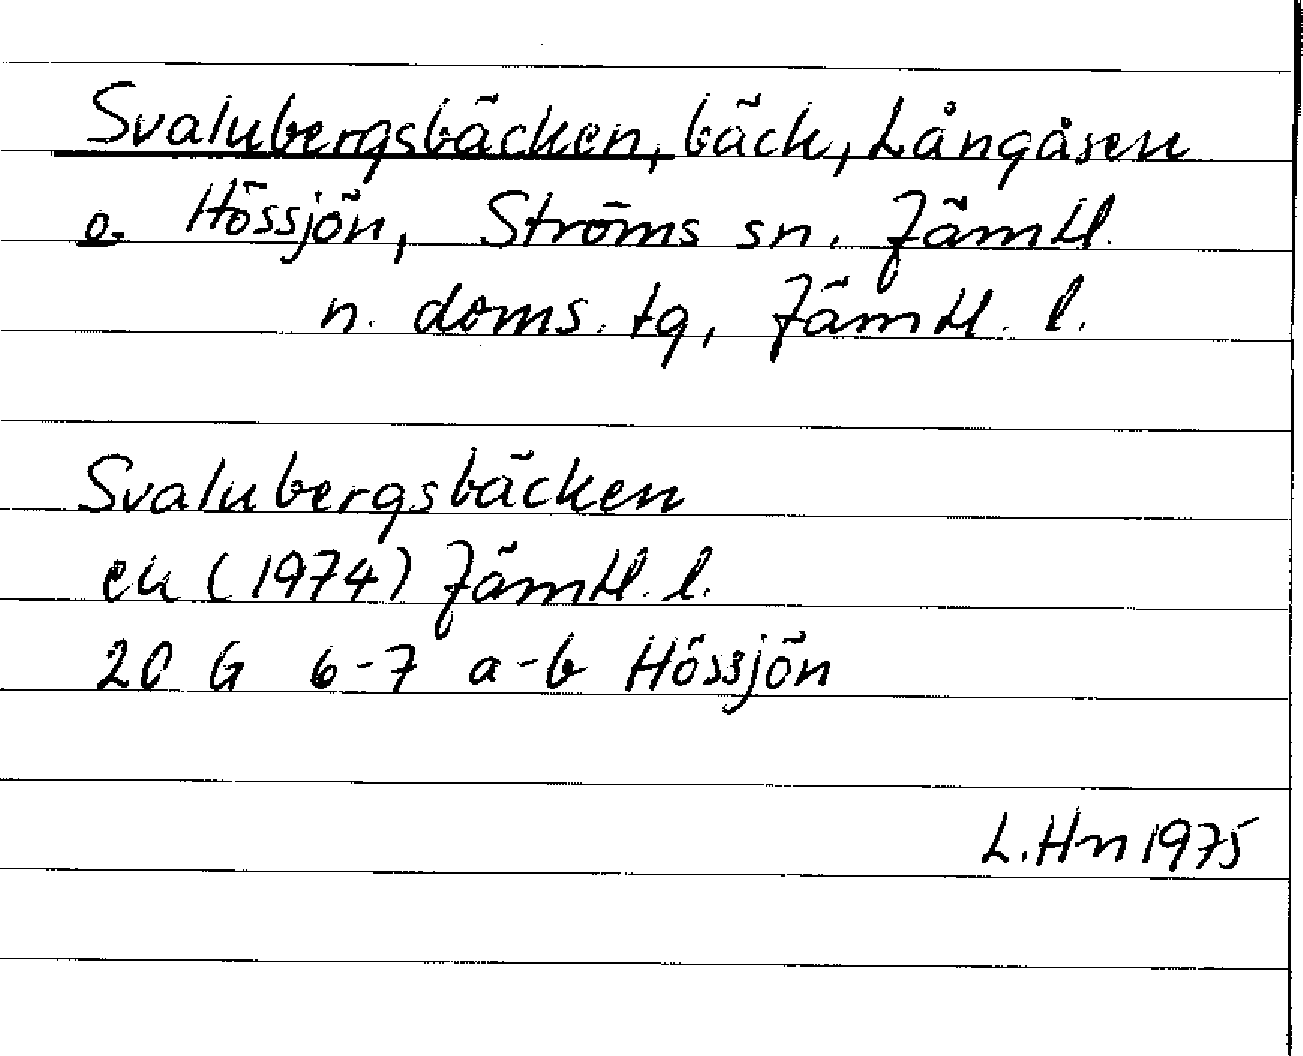 Svalubergsbäcken, bäck, Långåsen
o. Hössjön, Ströms sn. Jämtl.
n. doms. tg, Jämtl. l.
Svalubergsbäcken
ek (1974) Jämtl. l.
20 G 6-7 a-b Hössjön
L. Hn 1975